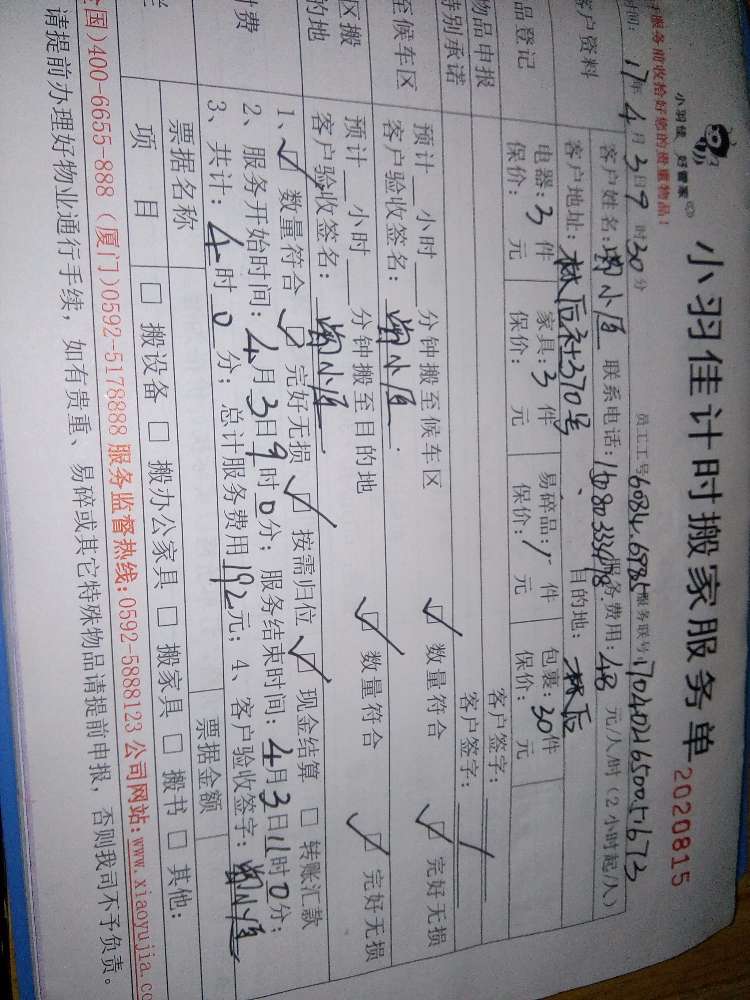 小羽佳 好管家
小羽佳计时搬家服务单 2020815
服务前收拾好您的贵重物品！
时间：17年4月3日9时30分 员工工号6084.6985 服务联号：
客户资料
客户姓名： 联系电话： 服务费用：48元/人/时（2小时起/人）
客户地址：林后社370号 目的地：林后
品登记
电器：3件 家具：3件 易碎品：1件 包裹：30件
保价： 元 保价： 元 保价： 元 保价： 元
物品申报 客户签字：
特别承诺 客户签字：
至候车区
预计 小时 分钟搬至候车区 数量符合 完好无损
客户验收签名：
区搬
的地
预计 小时 分钟搬至目的地 数量符合 完好无损
客户验收签名：
付费
1、 数量符合 完好无损 按需归位 现金结算 转账汇款
2、服务开始时间：4月3日9时0分；服务结束时间：4月3日11时0分；
3、共计：4时0分；总计服务费用192元；4、客户验收签字：
票据名称 票据金额
项目 搬设备 搬办公家具 搬家具 搬书 其他：
国)400-6655-888（厦门)0592-5178888 服务监督热线:0592-5888123 公司网站:www.xiaoyujia.co
请提前办理好物业通行手续，如有贵重、易碎或其它特殊物品请提前申报，否则我司不予负责。